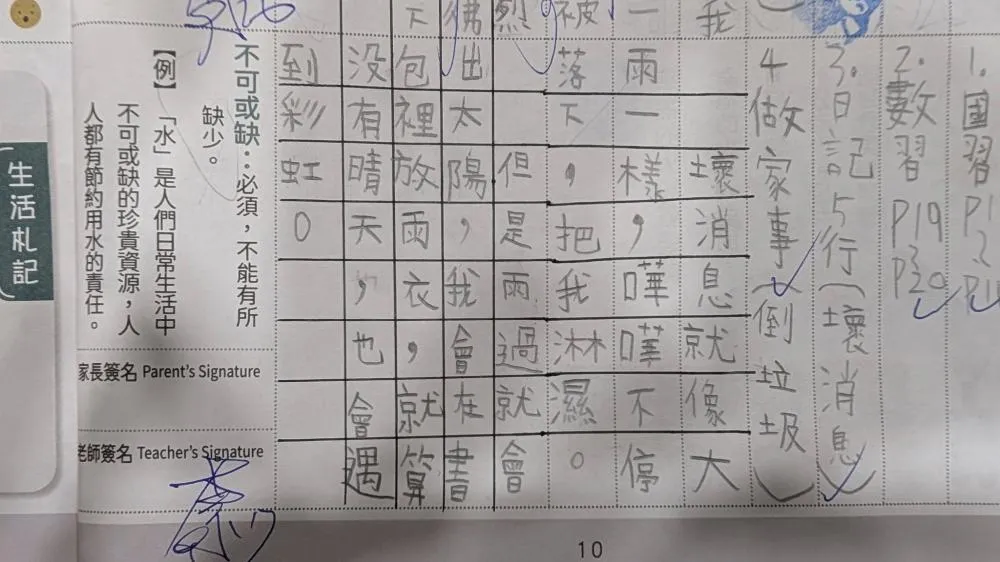 1.國習P1
2.數習P19~P20
3.日記5行(壞消息)
4做家事(倒垃圾)
我
壞消息就像大
一
雨一樣,嘩嘩不停
被
落下,把我淋濕。
烈
但是雨過就會
彿
出太陽,我會在書
下
包裡放雨衣,就算
没有晴天,也會遇
到彩虹。
不可或缺:必須,不能有所
缺少。
【例】「水」是人們日常生活中
不可或缺的珍貴資源,人
人都有節約用水的責任。
家長簽名 Parent's Signature
老師簽名 Teacher's Signature
生活札記
10